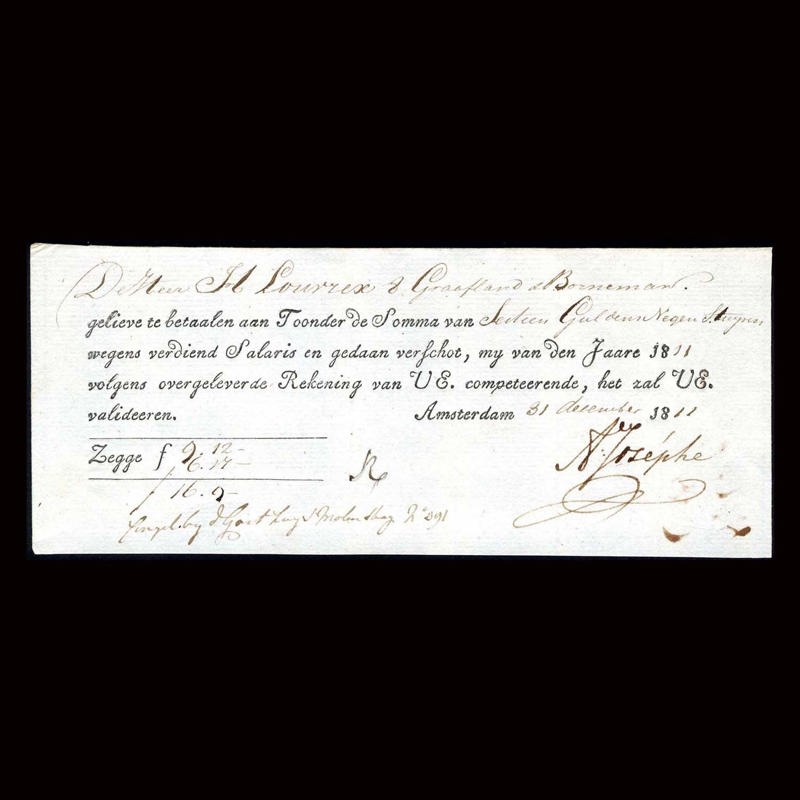 De Heer H Lourrex & Graafland & Borneman.
gelieve te betaalen aan Toonder de Somma van Sestien Guldens Negen Stuyvers
wegens verdiend Salaris en gedaan verschot, my van den Jaare 1811
volgens overgeleverde Rekening van UE. competeerende, het zal UE.
valideeren. Amsterdam 31 december 1811
Zegge f 9. 12 -
6. 17 -
R
A. Joséphe
16. 9 -
by d